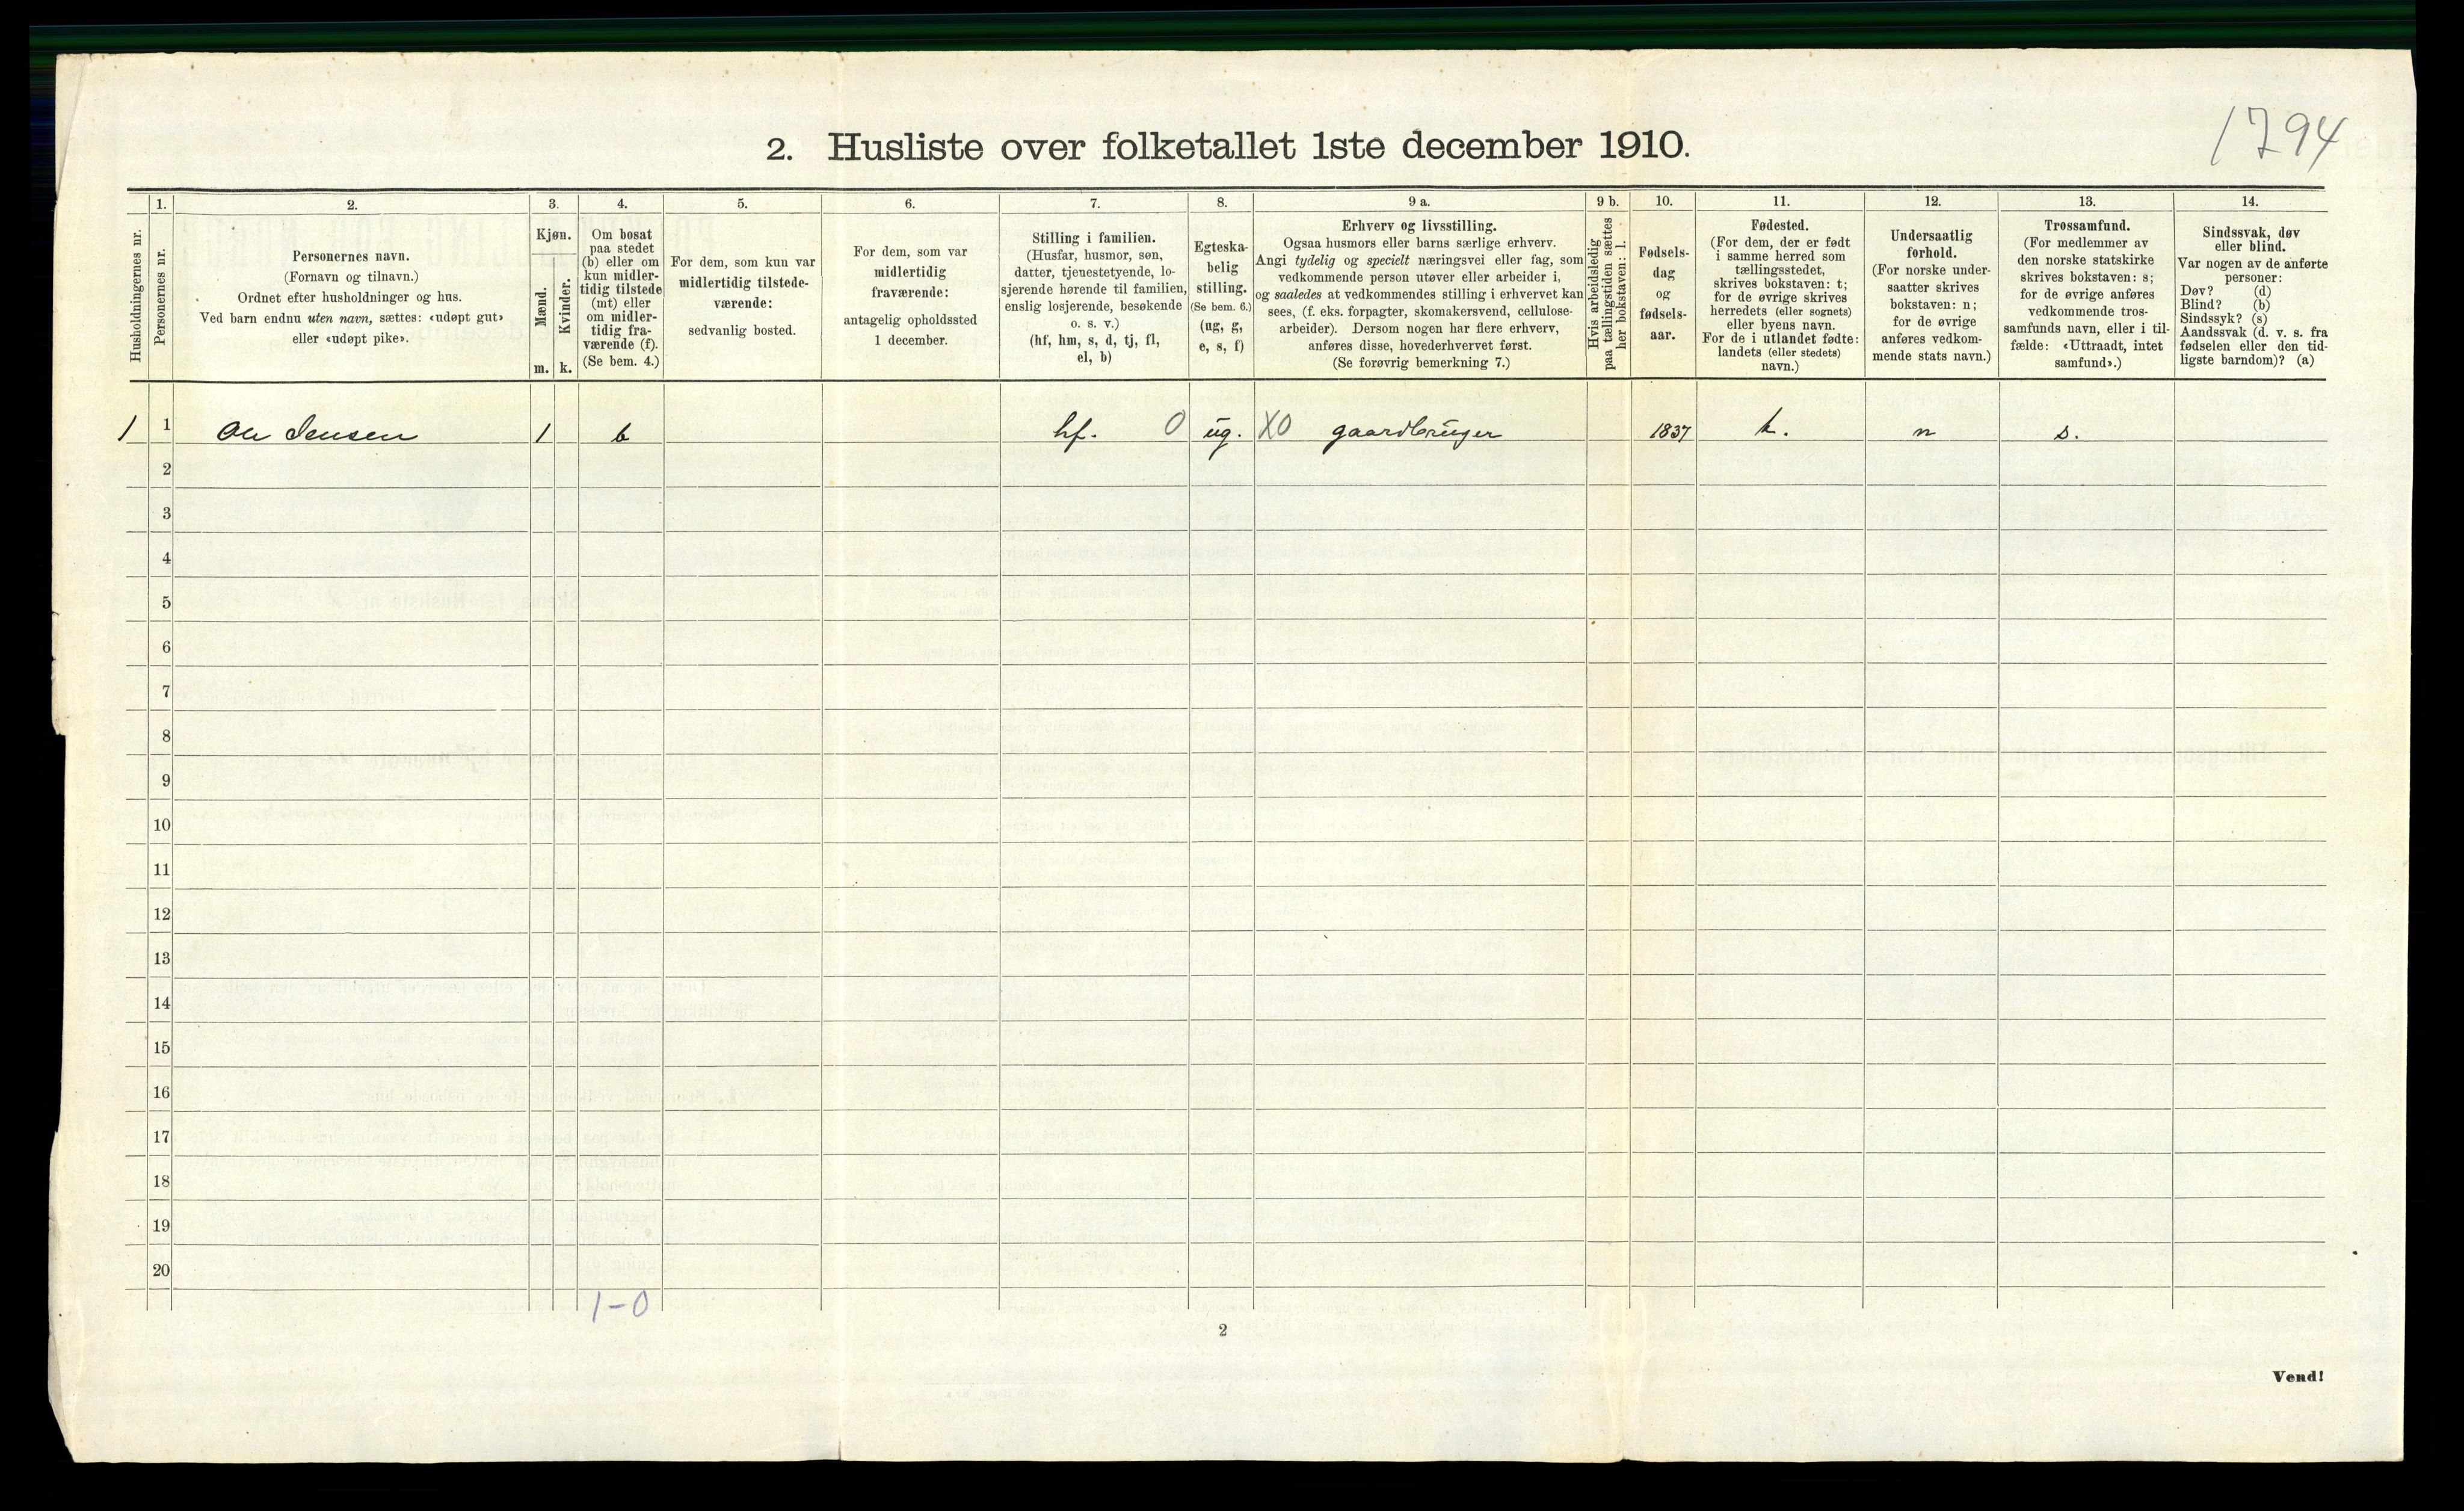 1794
2. Husliste over folketallet 1ste december 1910.
Husholdningernes nr.
1.
Personernes nr.
2.
Personernes navn.
(Fornavn og tilnavn.)
Ordnet efter husholdninger og hus.
Ved barn endnu uten navn, sættes: «udøpt gut»
eller «udøpt pike».
3.
Kjøn.
Mænd.
Kvinder.
m. k.
4.
Om bosat
paa stedet
(b) eller om
kun midler-
tidig tilstede
(mt) eller
om midler-
tidig fra-
værende (f).
(Se bem. 4.)
5.
For dem, som kun var
midlertidig tilstede-
værende:
sedvanlig bosted.
6.
For dem, som var
midlertidig
fraværende:
antagelig opholdssted
1 december.
7.
Stilling i familien.
(Husfar, husmor, søn,
datter, tjenestetyende, lo-
sjerende hørende til familien,
enslig losjerende, besøkende
o. s. v.)
(hf, hm, s, d, tj, fl,
el, b)
8.
Egteska-
belig
stilling.
(Se bem. 6.)
(ug, g,
e, s, f)
9 a.
Erhverv og livsstilling.
Ogsaa husmors eller barns særlige erhverv.
Angi tydelig og specielt næringsvei eller fag, som
vedkommende person utøver eller arbeider i,
og saaledes at vedkommendes stilling i erhvervet kan
sees, (f. eks. forpagter, skomakersvend, cellulose-
arbeider). Dersom nogen har flere erhverv,
anføres disse, hovederhvervet først.
(Se forøvrig bemerkning 7.)
9 b.
Hvis arbeidsledig
paa tællingstiden sættes
her bokstaven: l.
10.
Fødsels-
dag
og
fødsels-
aar.
11.
Fødested.
(For dem, der er født
i samme herred som
tællingsstedet,
skrives bokstaven: t;
for de øvrige skrives
herredets (eller sognets)
eller byens navn.
For de i utlandet fødte:
landets (eller stedets)
navn.)
12.
Undersaatlig
forhold.
(For norske under-
saatter skrives
bokstaven: n;
for de øvrige
anføres vedkom-
mende stats navn.)
13.
Trossamfund.
(For medlemmer av
den norske statskirke
skrives bokstaven: s;
for de øvrige anføres
vedkommende tros-
samfunds navn, eller i til-
fælde: «Uttraadt, intet
samfund».)
14.
Sindssvak, døv
eller blind.
Var nogen av de anførte
personer:
Døv? (d)
Blind? (b)
Sindssyk? (s)
Aandssvak (d. v. s. fra
fødselen eller den tid-
ligste barndom)? (a)
1 1 Ole Jensen 1 b hf. 0 ug. X0 gaardbruger 1837 t. n s.
2
3
4
5
6
7
8
9
10
11
12
13
14
15
16
17
18
19
20
1-0
2
Vend!